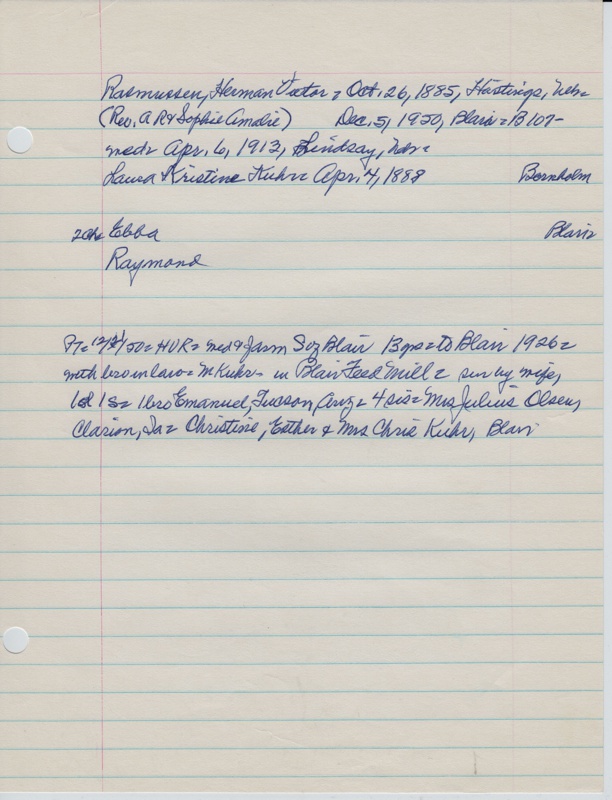 Rasmussen, Herman Victor = Oct. 26, 1885, Hastings, Nebr=
(Rev. A R & Sophie Amalie) Dec. 5, 1950, Blair = B 107-
med= Apr. 6, 1913, Lindsay, Nebr=
Laura Kristine Kuhr= Apr. 4, 1888 Bornholm
2ch= Ebba Blair
Raymond
= HVR = & farm Blair = to Blair 1926=
with bro in law = M Kuhr= in Blair Feed Mill = sur by wife,
1d 1s= 1 bro Emanuel, Tucson, Ariz = 4 sis= Mrs Julius Olsen,
Clarion, Ia= Christine, Esther & Mrs Chris Kuhr, Blair